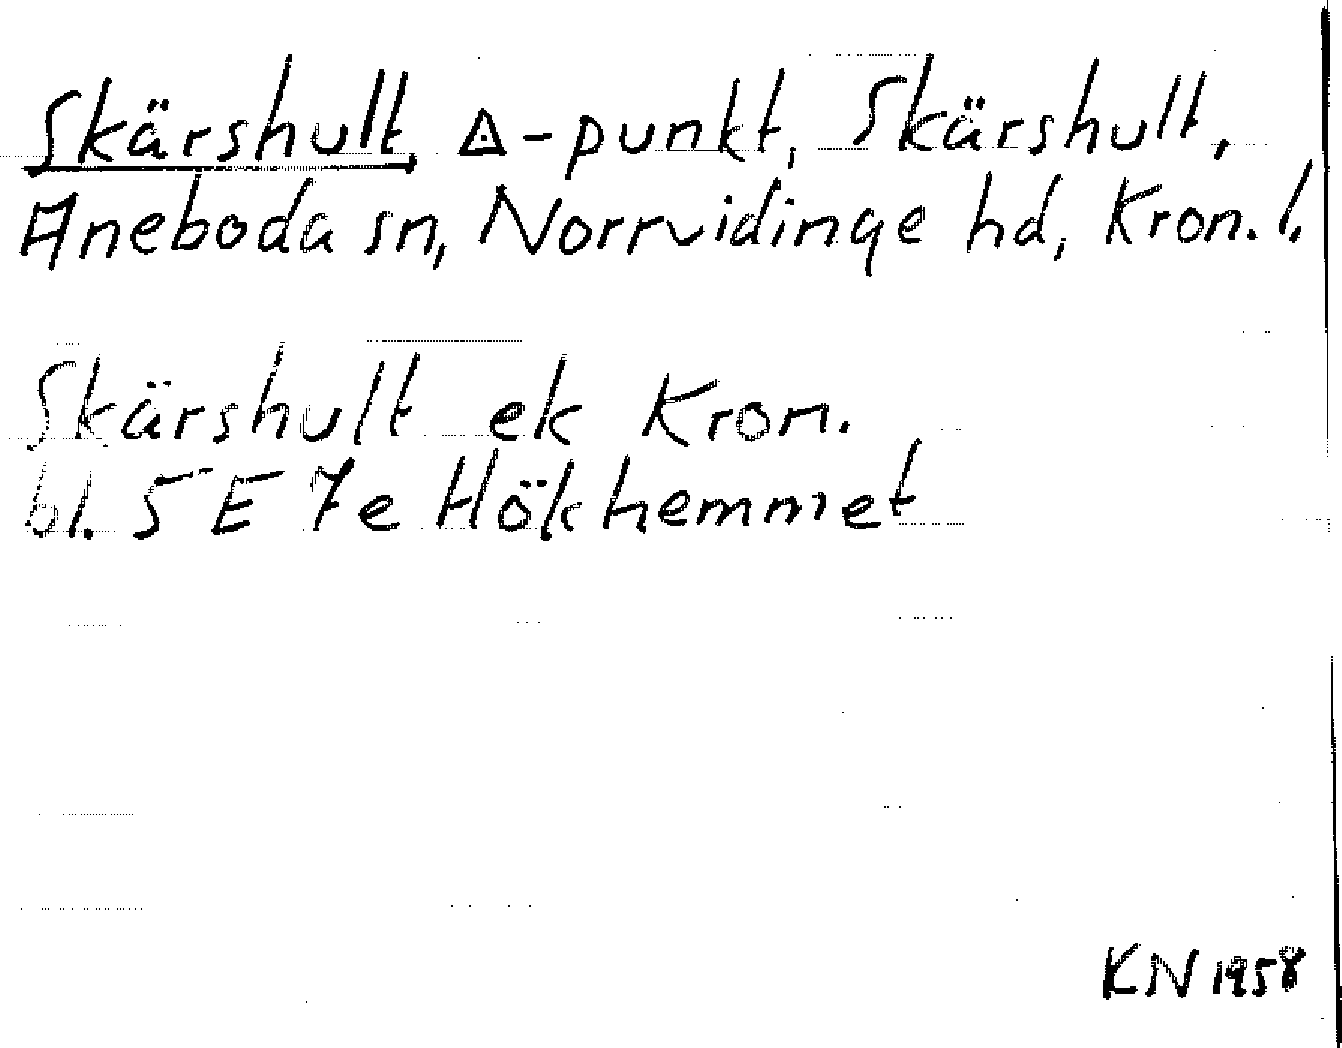 Skärshult, ◬-punkt, Skärshult,
Aneboda sn, Norrvidinge hd, Kron. l.
Skärshult ek Kron.
bl. 5 E 7e Hökhemmet
KN 1958